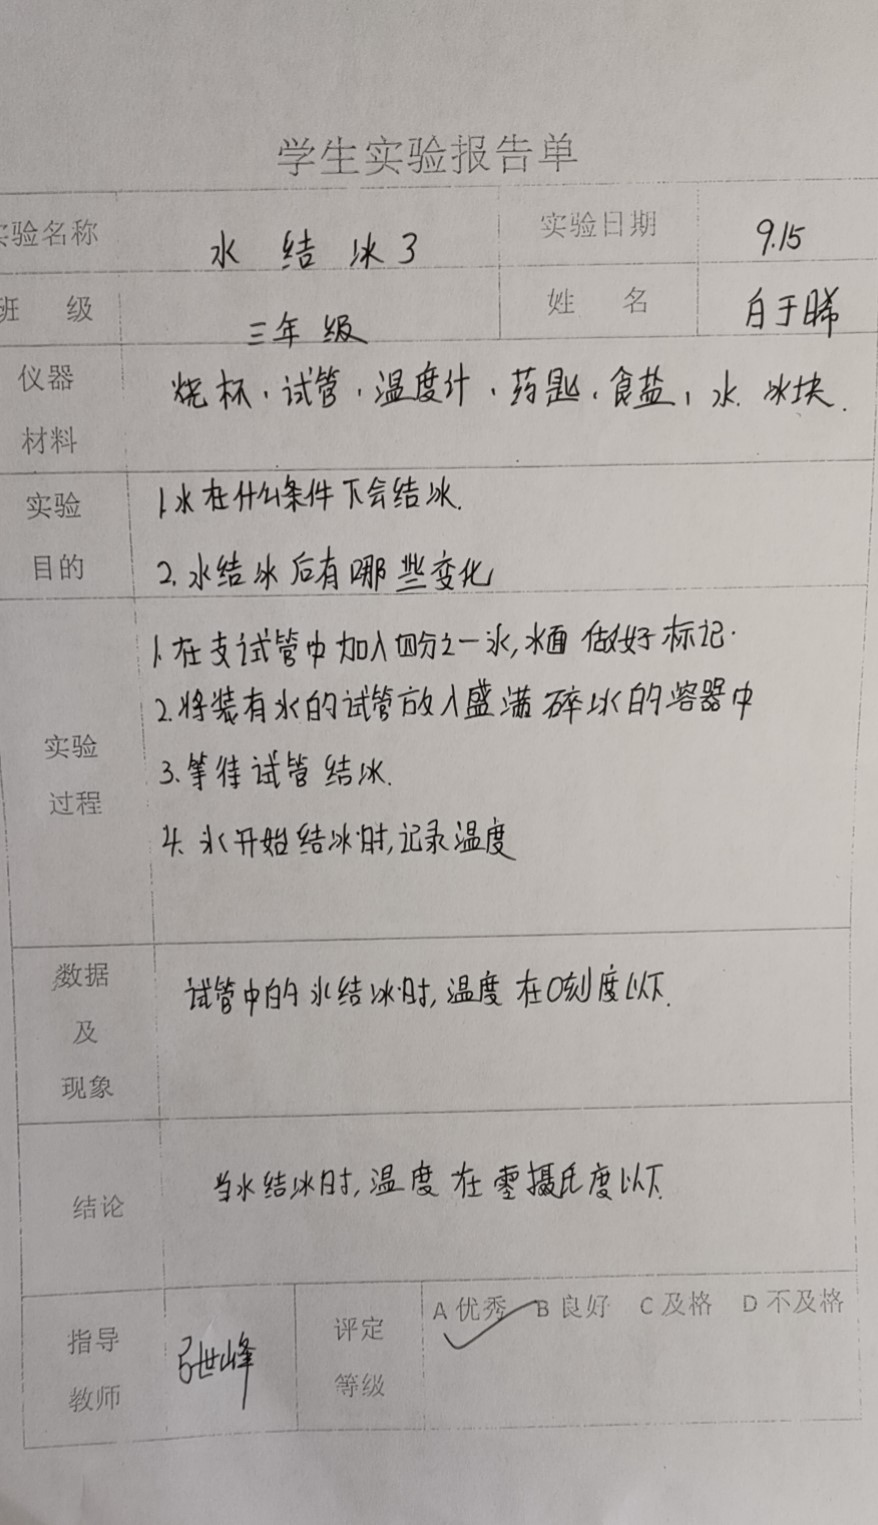 学生实验报告单
实验名称 水结冰了 实验日期 9.15
班 级 三年级 姓 名 白于晞
仪器 烧杯、试管、温度计、药匙、食盐、水、冰块.
材料
实验 1.水在什么条件下会结冰.
目的 2.水结冰后有哪些变化
1.在支试管中加入四分之一水,水面做好标记.
2.将装有水的试管放入盛满碎冰的溶器中
实验 3.等待试管结冰.
过程
4.水开始结冰时,记录温度
数据 试管中的水结冰时,温度在0刻度以下.
及
现象
结论 当水结冰时,温度在零摄氏度以下.
指导 张世峰 评定 A优秀 B良好 C及格 D不及格
教师 等级